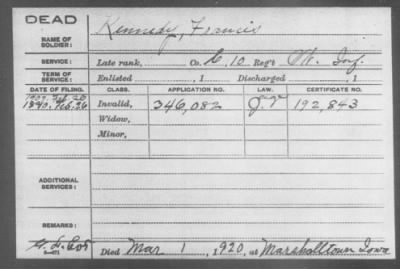 DEAD
NAME OF SOLDIER: Kennedy, Francis
SERVICE: Late rank, Co. 10 Reg't Inf.
TERM OF SERVICE: Enlisted , 1 Discharged , 1
DATE OF FILING. CLASS. APPLICATION NO. LAW. CERTIFICATE NO.
1880, Feb. 26 Invalid, 346,082 192,843
Widow,
Minor,
ADDITIONAL SERVICES:
REMARKS:
Died Mar 1, 1920, at Marshalltown Iowa